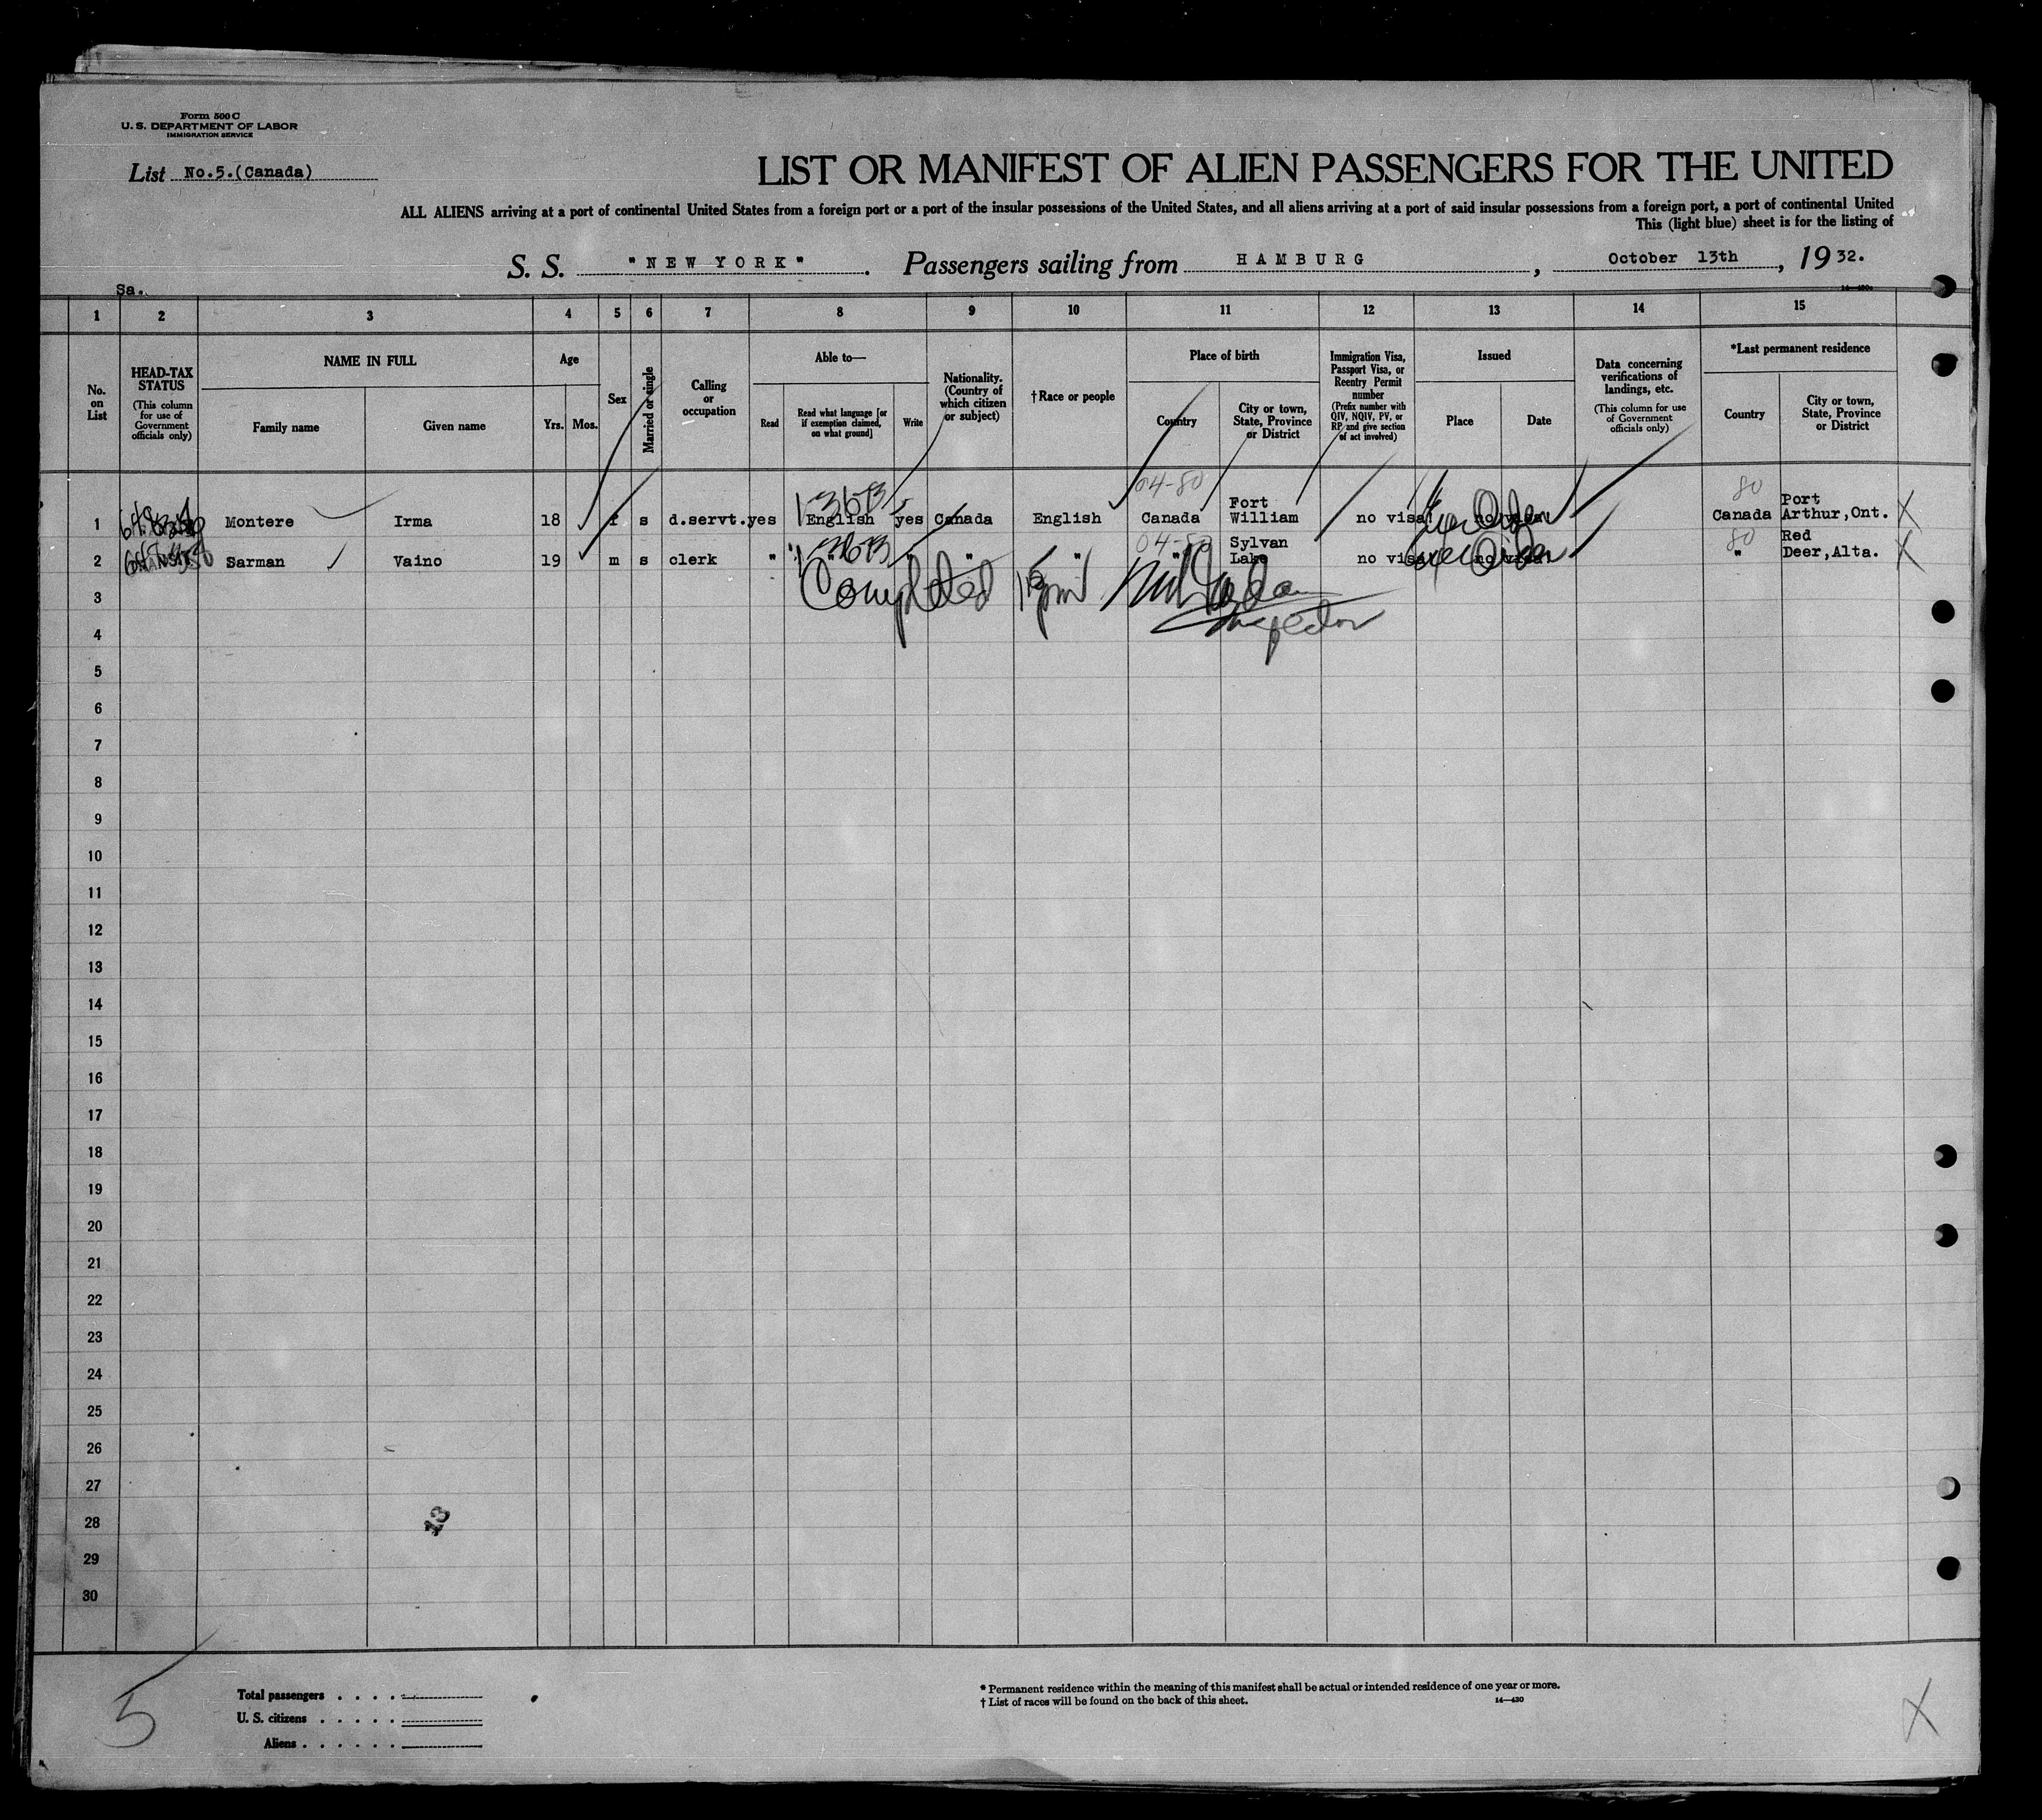 Form 500 C
U. S. DEPARTMENT OF LABOR
IMMIGRATION SERVICE
List No.5.(Canada)
LIST OR MANIFEST OF ALIEN PASSENGERS FOR THE UNITED
ALL ALIENS arriving at a port of continental United States from a foreign port or a port of the insular possessions of the United States, and all aliens arriving at a port of said insular possessions from a foreign port, a port of continental United
This (light blue) sheet is for the listing of
S. S. "NEW YORK". Passengers sailing from HAMBURG, October 13th, 19 32.
Sa.
1 2 3 4 5 6 7 8 9 10 11 12 13 14 15
No. on List
HEAD-TAX STATUS
(This column for use of Government officials only)
NAME IN FULL
Family name
Given name
Age
Yrs.
Mos.
Sex
Married or single
Calling or occupation
Able to—
Read
Read what language [or if exemption claimed, on what ground]
Write
Nationality. (Country of which citizen or subject)
†Race or people
Place of birth
Country
City or town, State, Province or District
Immigration Visa, Passport Visa, or Reentry Permit number
(Prefix number with QIV, NQIV, PV, or RP and give section of act involved)
Issued
Place
Date
Data concerning verifications of landings, etc.
(This column for use of Government officials only)
*Last permanent residence
Country
City or town, State, Province or District
04-80 80
1 Montere Irma 18 f s d.servt. yes English yes Canada English Canada Fort William no visa! no visa! Canada Port Arthur,Ont. X
04-80 80
2 Sarman Vaino 19 m s clerk " " " " " " Sylvan Lake no visa! no visa! " Red Deer,Alta. X
Completed
Inspector
3
4
5
6
7
8
9
10
11
12
13
14
15
16
17
18
19
20
21
22
23
24
25
26
27
28
29
30
13
5
Total passengers . . . .
U. S. citizens . . . . .
Aliens . . . . . .
* Permanent residence within the meaning of this manifest shall be actual or intended residence of one year or more.
† List of races will be found on the back of this sheet. 14—430
X